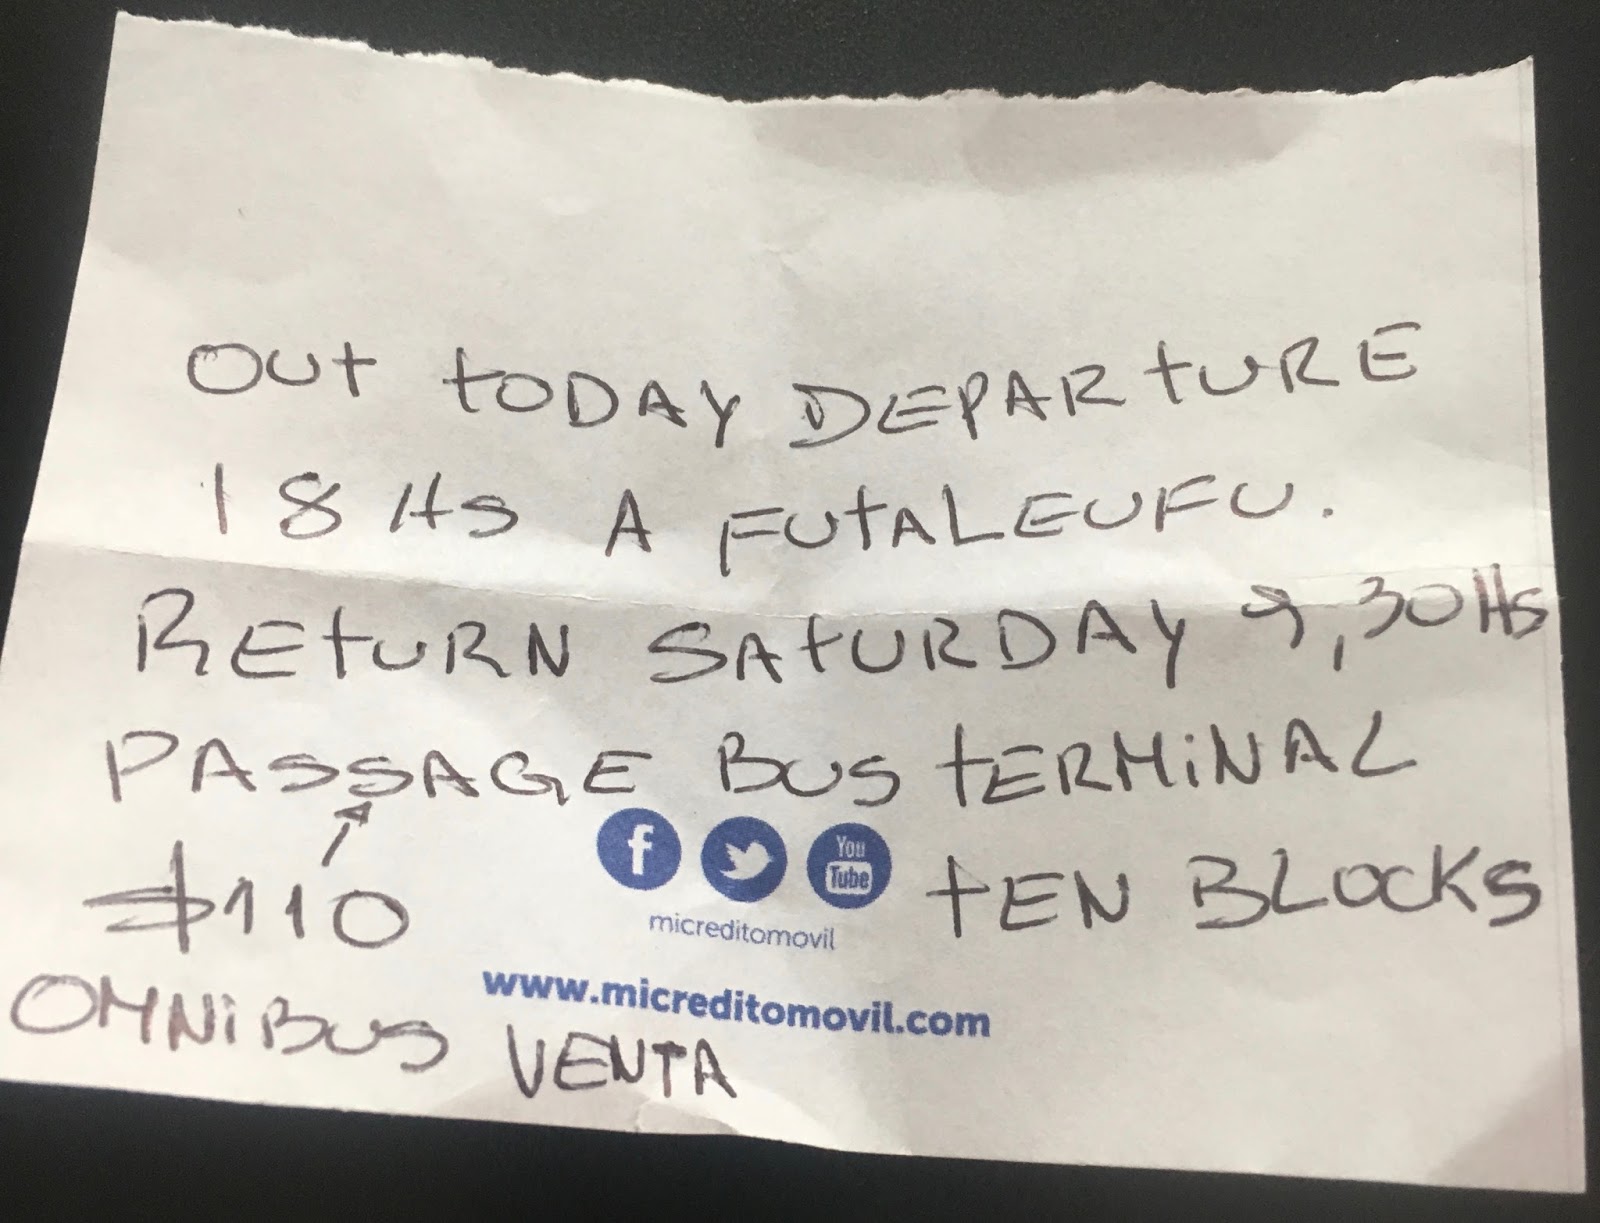 OUt tODAY DEPARtURE
18 Hs A FUtALEUFU.
REtURN SAtURDAY 9,30Hs
PASSAGE BUS tERMiNAL
$110
f You Tube
tEN BLOCKS
micreditomovil
www.micreditomovil.com
OMNiBUS VENTA